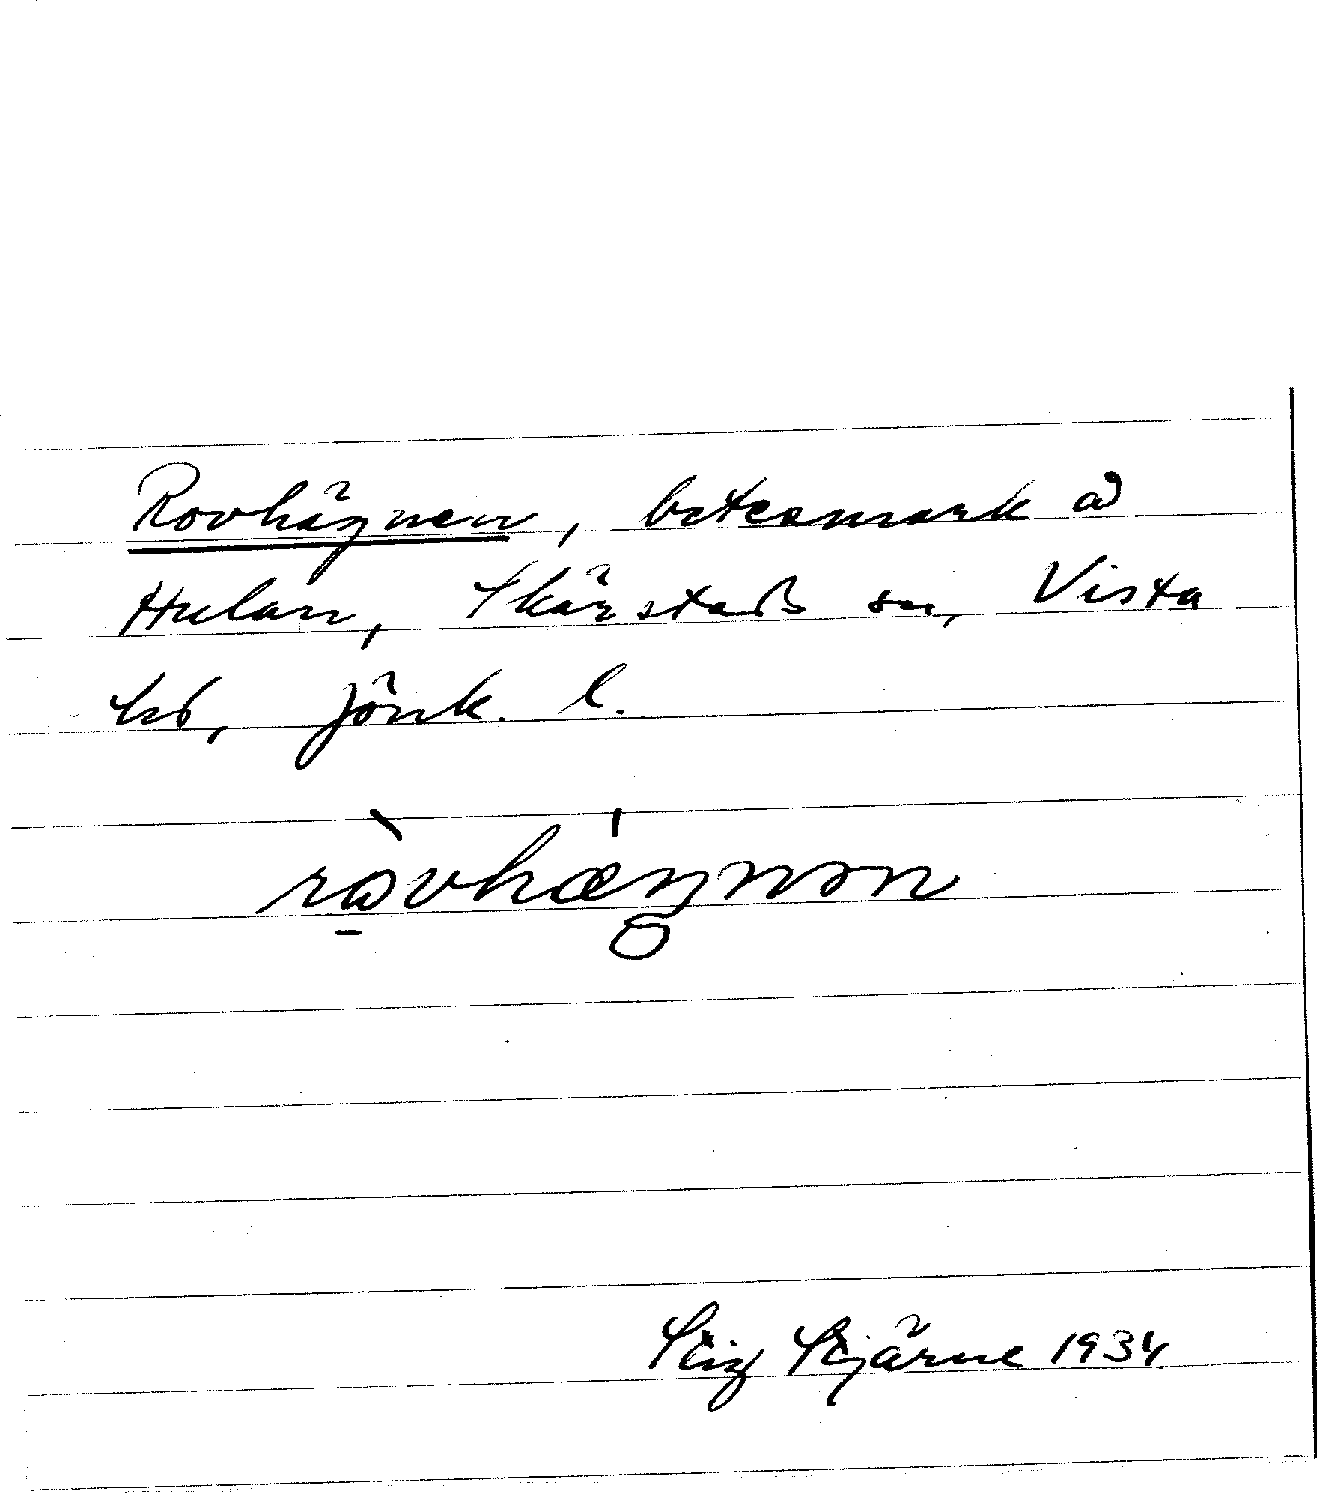 Rovhägnen, betesmark å
Hulan, Skärstads sn, Vista
hd, Jönk. l.
ròvhæ̀gnən
Stig Stjärne 1934